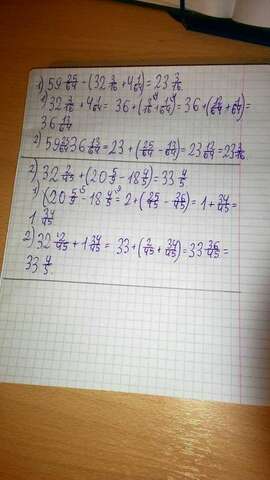 1) 59 25/64 - (32 3/16 + 4 1/64) = 23 3/16.
1) 32 3/16 + 4 1/64 = 36 + (3/16 + 1/64) = 36 + (12/64 + 1/64) =
36 13/64
2) 59 25/64 36 13/64 = 23 + (25/64 - 13/64) = 23 12/64 = 23 3/16
2) 32 2/45 + (20 5/9 - 18 4/5) = 33 4/5
1) (20 5/9 - 18 4/5 = 2 + (25/45 - 36/45) = 1 + 34/45 =
1 34/45
2) 32 2/45 + 1 34/45 = 33 + (2/45 + 34/45) = 33 36/45 =
33 4/5